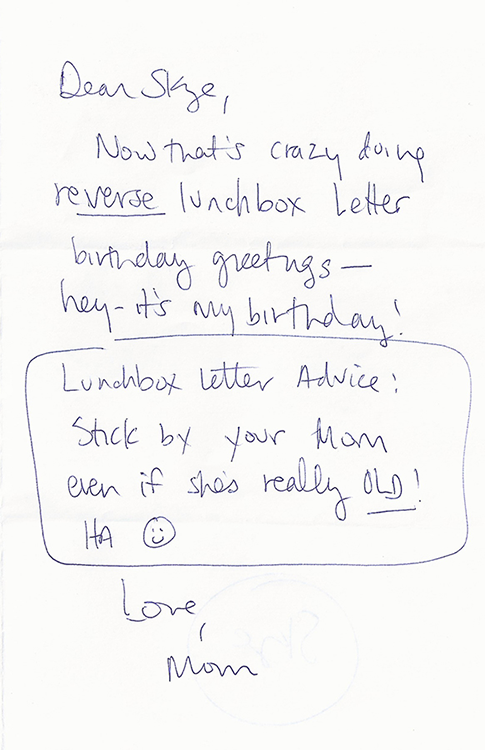 Dear Skye,
Now that's crazy doing
reverse lunchbox letter
birthday greetings —
hey - it's my birthday!
Lunchbox Letter Advice:
Stick by your Mom
even if she's really OLD!
HA ☺
Love,
Mom
Skye